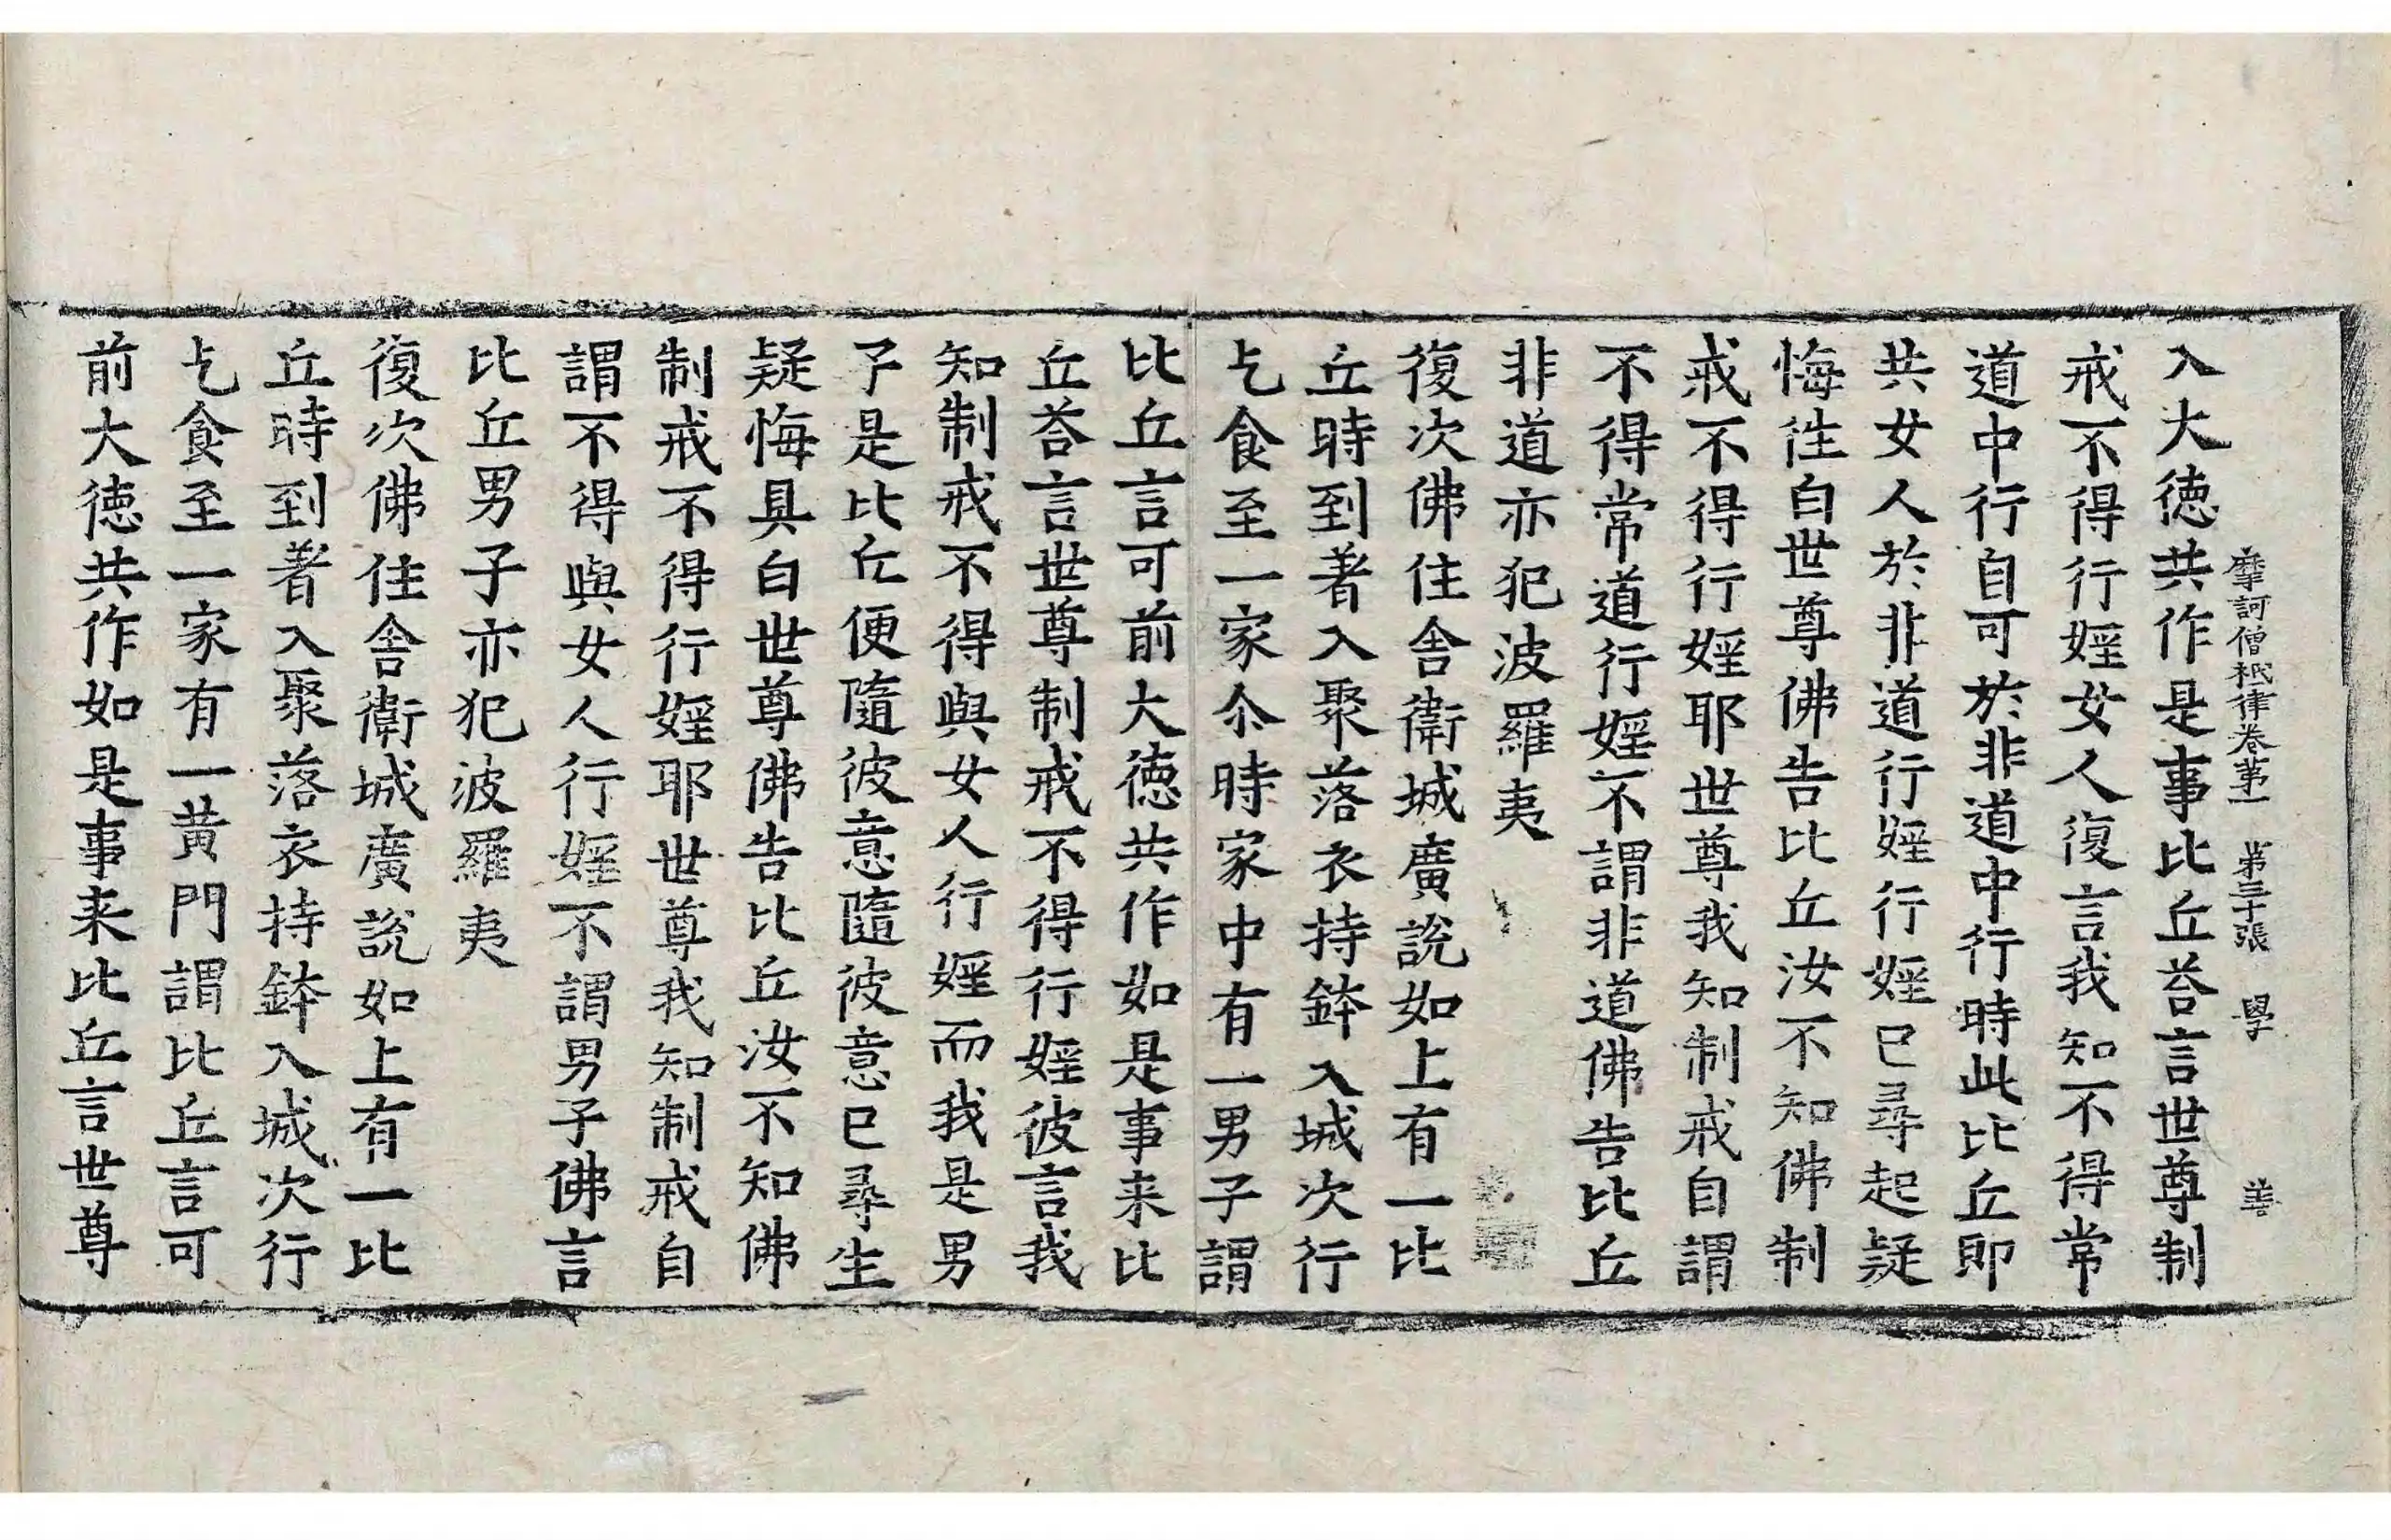 摩訶僧祇律卷苐一 苐三十張 學 善
入大徳共作是事比丘荅言世尊制
戒不得行婬女人復言我知不得常
道中行自可於非道中行時此比丘即
共女人於非道行婬行婬已尋起疑
悔徃白世尊佛告比丘汝不知佛制
戒不得行婬耶世尊我知制戒自謂
不得常道行婬不謂非道佛告比丘
非道亦犯波羅夷
復次佛住舎衛城廣說如上有一比
丘時到著入聚落衣持鉢入城次行
乞食至一家尒時家中有一男子謂
比丘言可前大徳共作如是事来比
丘荅言世尊制戒不得行婬彼言我
知制戒不得與女人行婬而我是男
子是比丘便隨彼意隨彼意已尋生
疑悔具白世尊佛告比丘汝不知佛
制戒不得行婬耶世尊我知制戒自
謂不得與女人行婬不謂男子佛言
比丘男子亦犯波羅夷
復次佛住舎衛城廣說如上有一比
丘時到著入聚落衣持鉢入城次行
乞食至一家有一黄門謂比丘言可
前大徳共作如是事来比丘言世尊